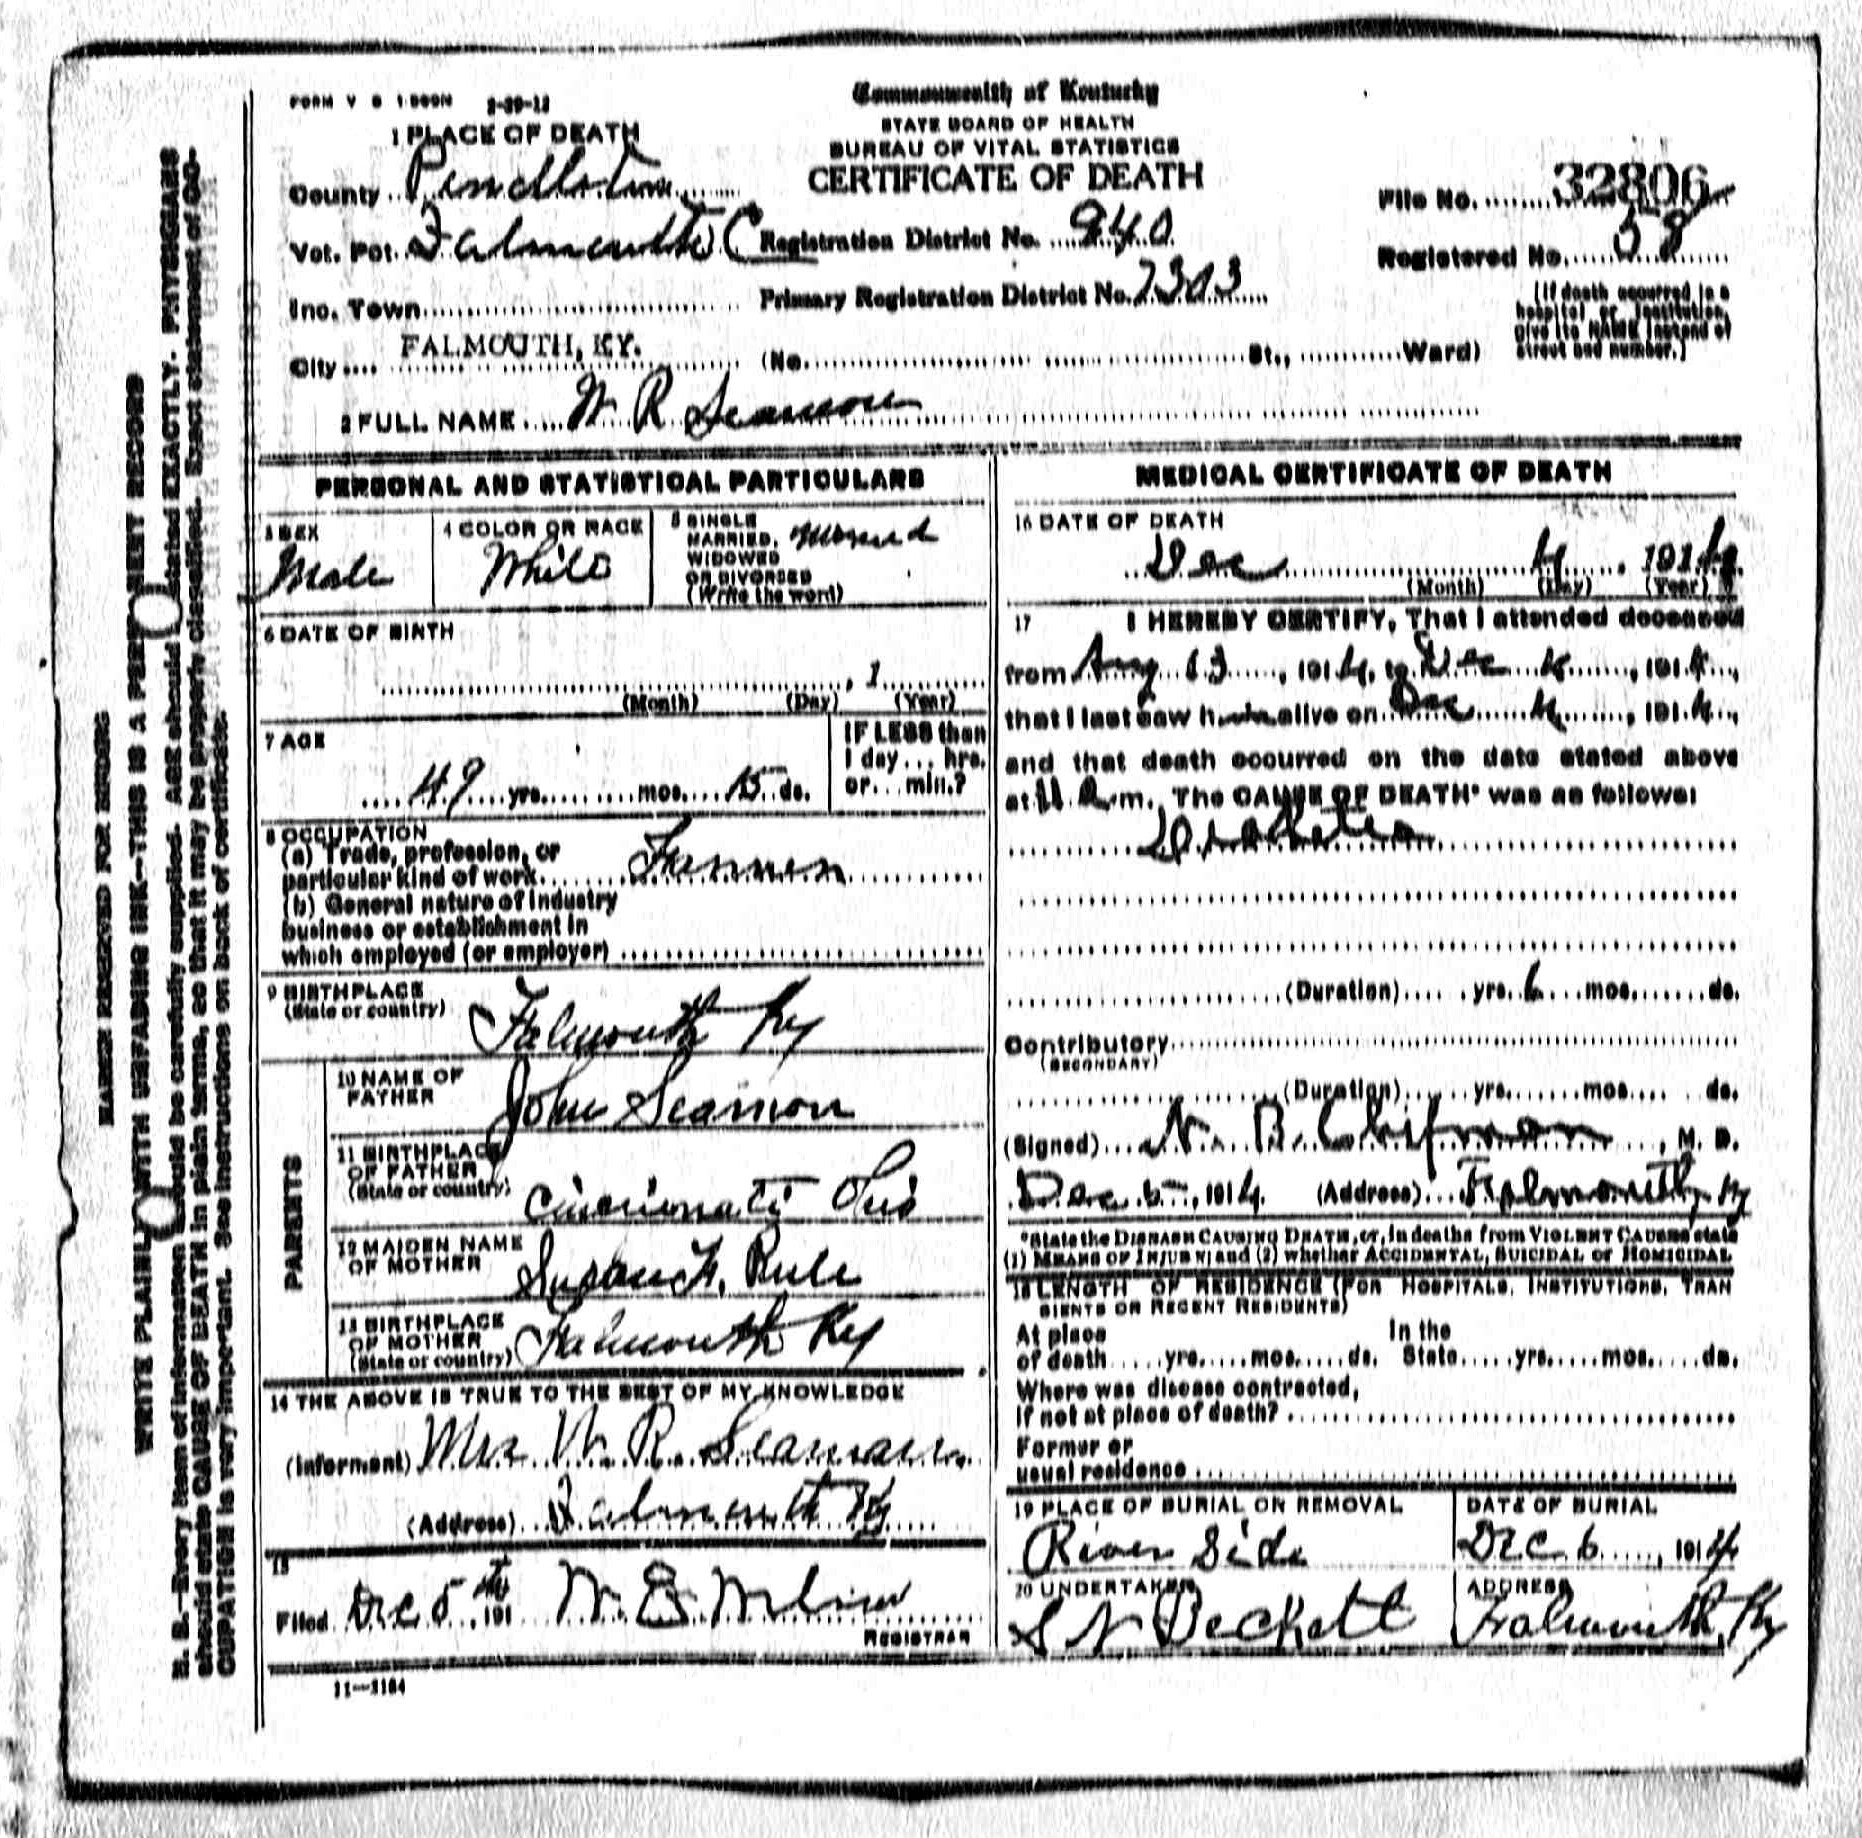 FORM V S 1-500N 2-29-12
Commonwealth of Kentucky
STATE BOARD OF HEALTH
BUREAU OF VITAL STATISTICS
CERTIFICATE OF DEATH
1 PLACE OF DEATH
County Pendleton
File No. 32806
Vot. Pct. Falmouth C Registration District No. 940
Registered No. 58
Inc. Town Primary Registration District No. 7303
(If death occurred in a hospital or institution, give its NAME instead of street and number.)
City FALMOUTH, KY. (No. St., Ward)
2 FULL NAME W R Seamon
PERSONAL AND STATISTICAL PARTICULARS
3 SEX
Male
4 COLOR OR RACE
White
5 SINGLE
MARRIED,
WIDOWED
OR DIVORCED
(Write the word)
Married
6 DATE OF BIRTH
, 1
(Month) (Day) (Year)
7 AGE
49 yrs. mos. 15 ds.
IF LESS than
1 day... hrs.
or... min.?
8 OCCUPATION
(a) Trade, profession, or
particular kind of work Farmer
(b) General nature of industry
business or establishment in
which employed (or employer)
9 BIRTHPLACE
(State or country)
Falmouth Ky
PARENTS
10 NAME OF
FATHER
John Seamon
11 BIRTHPLACE
OF FATHER
(State or country)
Cincinnati Ohio
12 MAIDEN NAME
OF MOTHER
Susan F. Rule
13 BIRTHPLACE
OF MOTHER
(State or country)
Falmouth Ky
14 THE ABOVE IS TRUE TO THE BEST OF MY KNOWLEDGE
(Informant) Mrs W. R. Seamon
(Address) Falmouth Ky
15
Filed Dec 5th, 191 W. E.
REGISTRAR
11—3184
MEDICAL CERTIFICATE OF DEATH
16 DATE OF DEATH
Dec 4, 1914
(Month) (Day) (Year)
17 I HEREBY CERTIFY, That I attended deceased
from Aug 13, 1914, to Dec 4, 1914,
that I last saw him alive on Dec 4, 1914,
and that death occurred on the date stated above
at 11 a m. The CAUSE OF DEATH* was as follows:
Diabetes
(Duration) yrs. 6 mos. ds.
Contributory
(SECONDARY)
(Duration) yrs. mos. ds.
(Signed) N. B. Chipman, M. D.
Dec 5, 1914 (Address) Falmouth, Ky
*State the DISEASE CAUSING DEATH, or, in deaths from VIOLENT CAUSES state
(1) MEANS OF INJURY; and (2) whether ACCIDENTAL, SUICIDAL or HOMICIDAL
18 LENGTH OF RESIDENCE (FOR HOSPITALS, INSTITUTIONS, TRAN
SIENTS OR RECENT RESIDENTS)
At place
of death yrs. mos. ds.
In the
State yrs. mos. ds.
Where was disease contracted,
If not at place of death?
Former or
usual residence
19 PLACE OF BURIAL OR REMOVAL
River Side
DATE OF BURIAL
Dec 6, 1914
20 UNDERTAKER
S N Beckett
ADDRESS
Falmouth, Ky
MARGIN RESERVED FOR BINDING
WRITE PLAINLY WITH UNFADING INK—THIS IS A PERMANENT RECORD
N. B.—Every item of information should be carefully supplied. AGE should be stated EXACTLY. PHYSICIANS
should state CAUSE OF DEATH in plain terms, so that it may be properly classified. Exact statement of OC-
CUPATION is very important. See instructions on back of certificate.